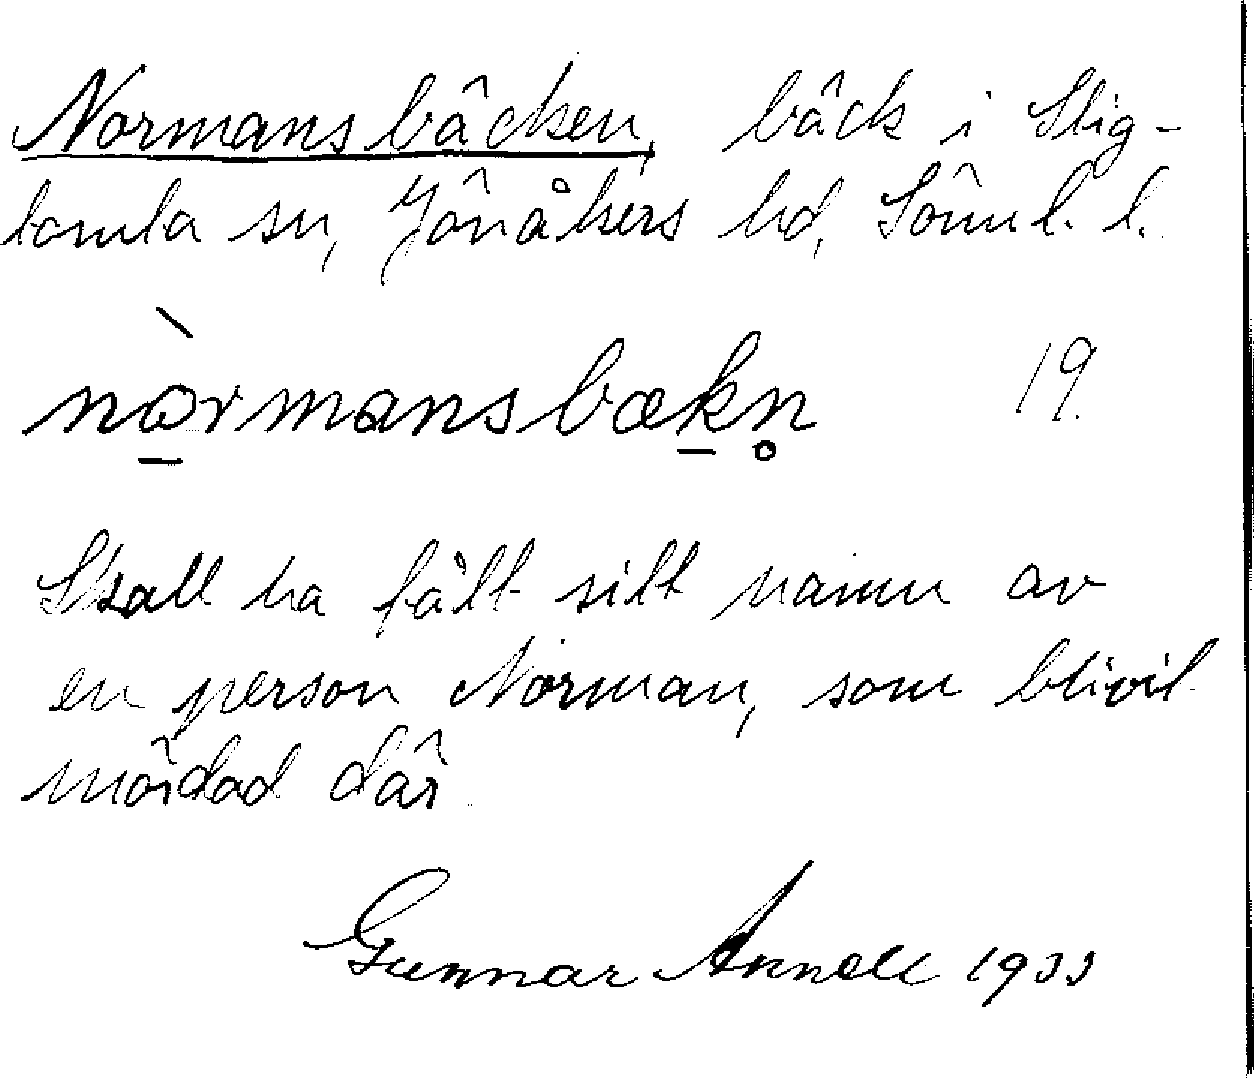 Normansbäcken, bäck i Stig-
tomta sn, Jönåkers hd, Söml. l.
nòrmansbækn̥ 19.
Skall ha fått sitt namn av
en person Norman, som blivit
mördad där.
Gunnar Annell 1933